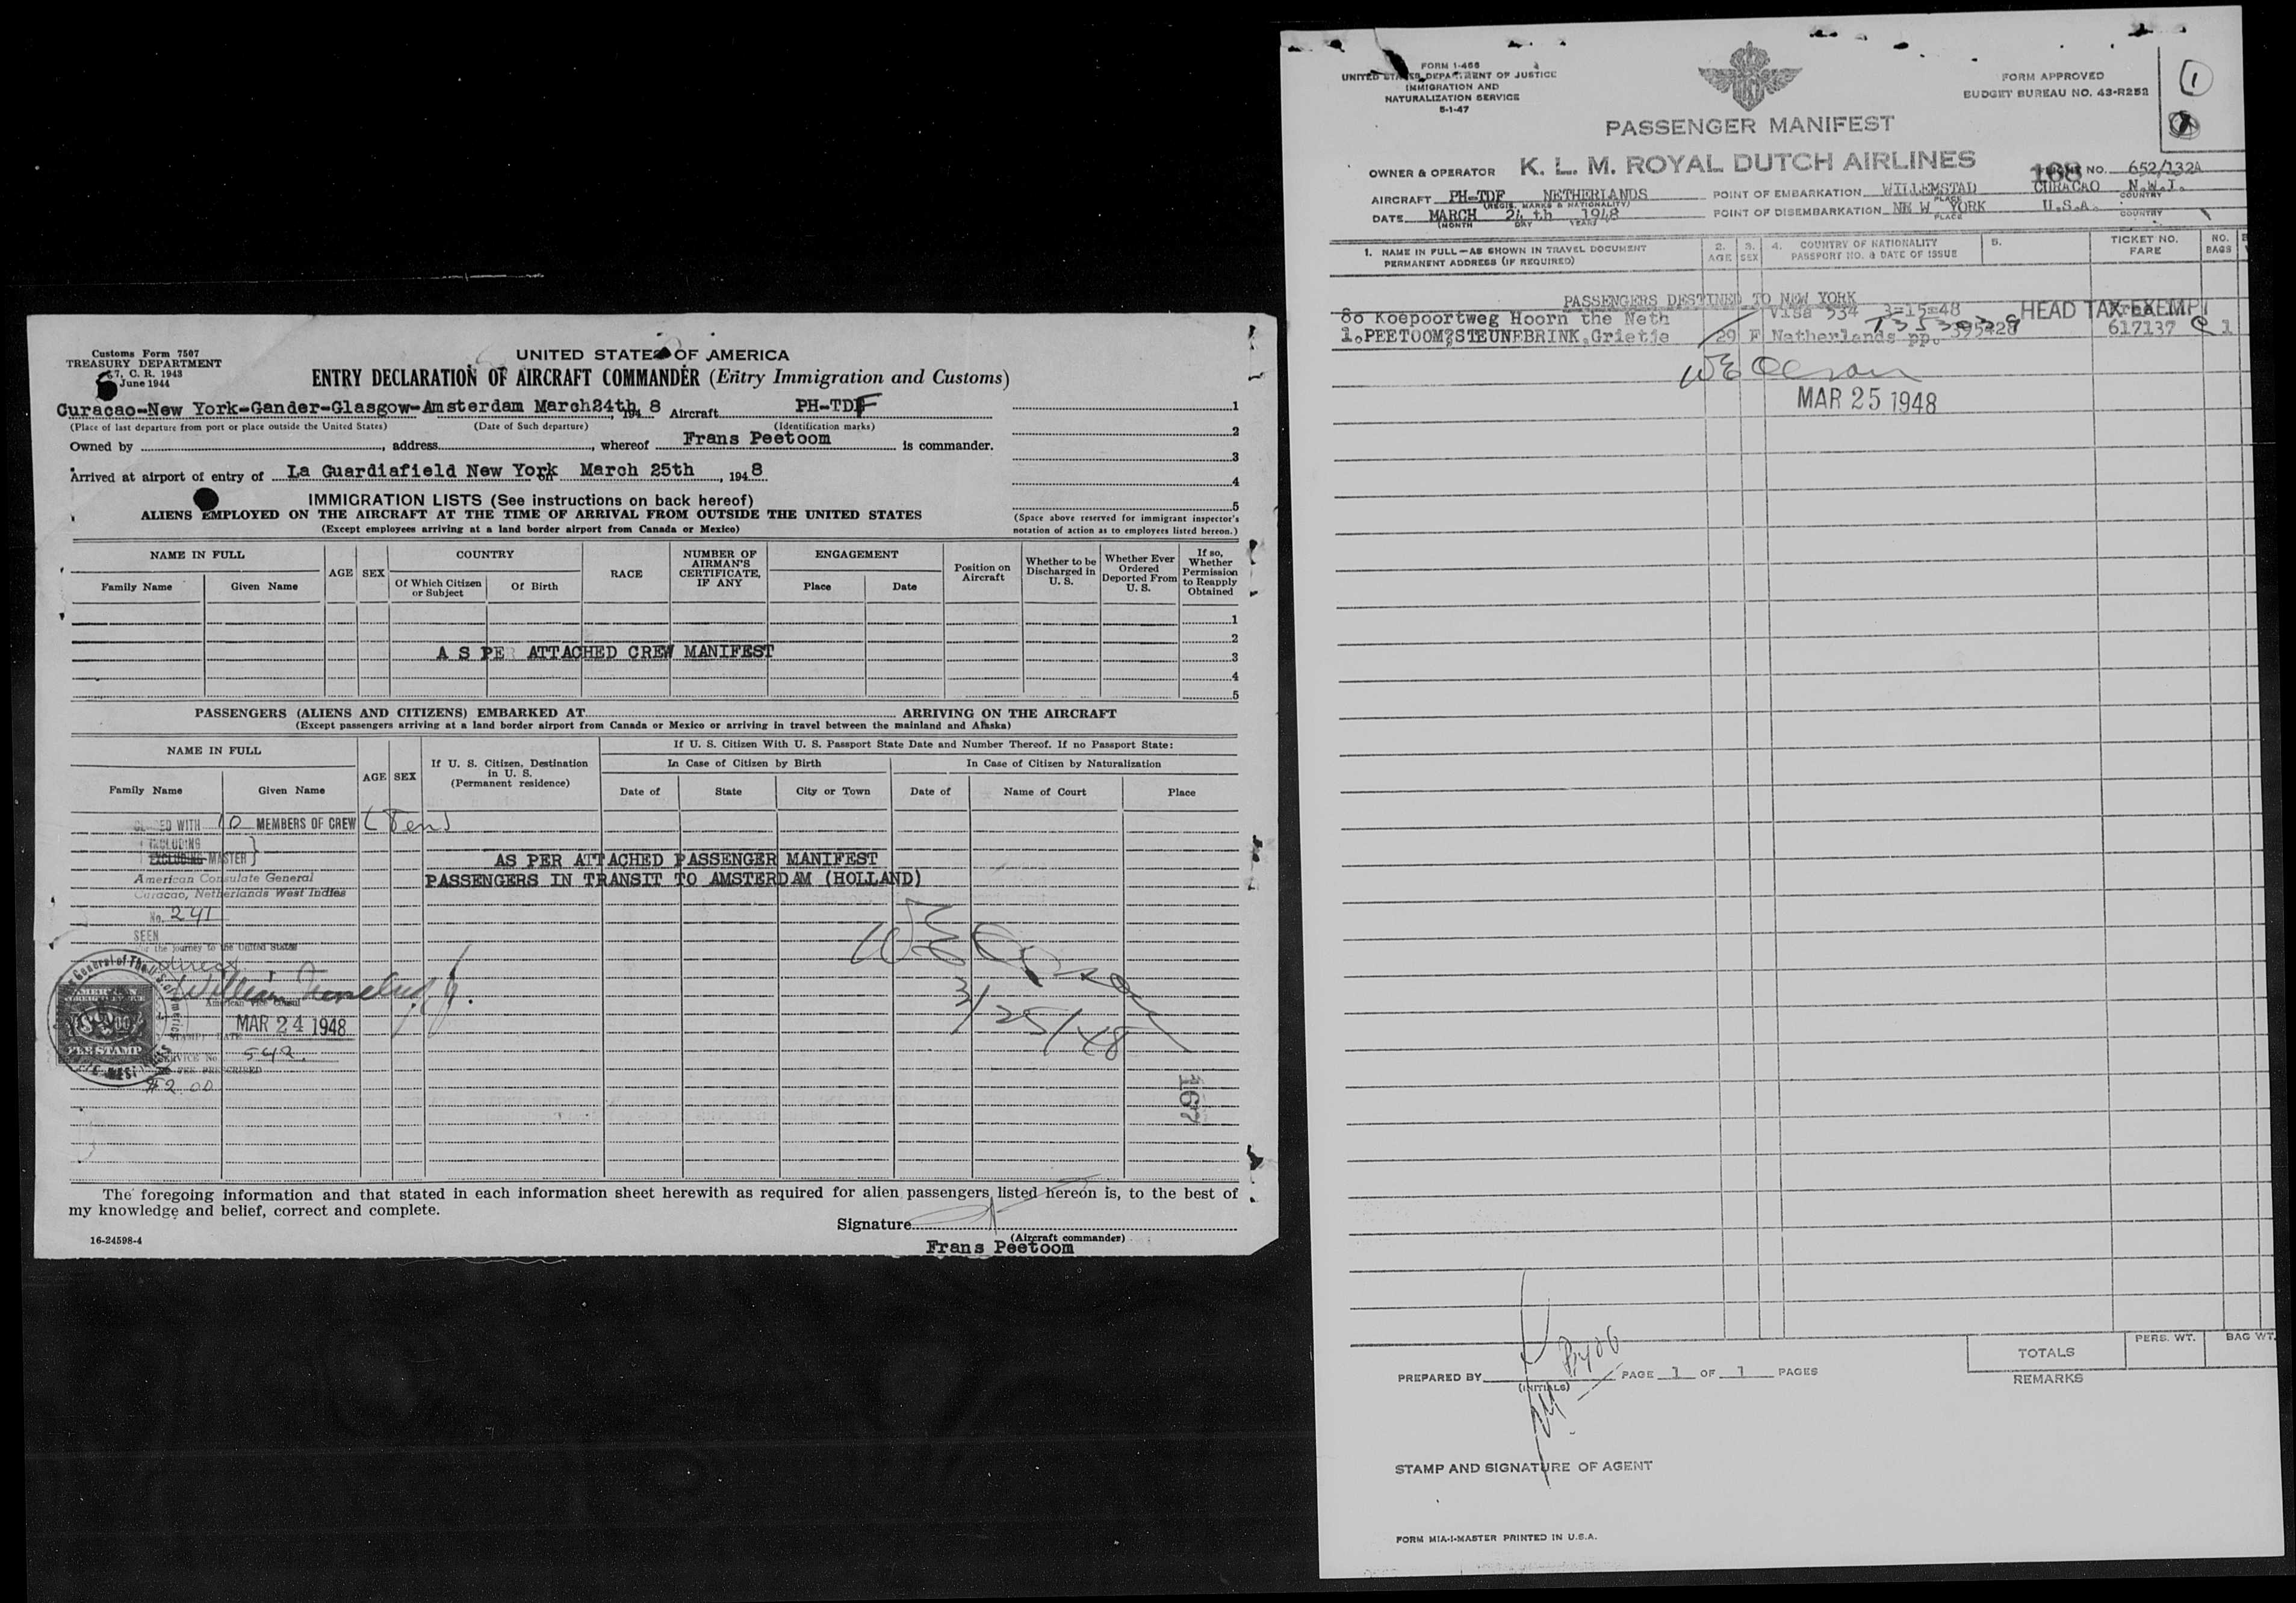 Customs Form 7507
TREASURY DEPARTMENT
7, C. R. 1943
June 1944
UNITED STATES OF AMERICA
ENTRY DECLARATION OF AIRCRAFT COMMANDER (Entry Immigration and Customs)
Curacao-New York-Gander-Glasgow-Amsterdam March24th, 194 8 Aircraft PH-TDF
(Place of last departure from port or place outside the United States) (Date of Such departure) (Identification marks)
Owned by , address , whereof Frans Peetoom is commander.
Arrived at airport of entry of La Guardiafield New York on March 25th , 194 8
1
2
3
4
5
(Space above reserved for immigrant inspector's
notation of action as to employees listed hereon.)
IMMIGRATION LISTS (See instructions on back hereof)
ALIENS EMPLOYED ON THE AIRCRAFT AT THE TIME OF ARRIVAL FROM OUTSIDE THE UNITED STATES
(Except employees arriving at a land border airport from Canada or Mexico)
NAME IN FULL
Family Name Given Name
AGE SEX
COUNTRY
Of Which Citizen or Subject Of Birth
RACE
NUMBER OF AIRMAN'S CERTIFICATE, IF ANY
ENGAGEMENT
Place Date
Position on Aircraft
Whether to be Discharged in U. S.
Whether Ever Ordered Deported From U. S.
If so, Whether Permission to Reapply Obtained
1
2
A S PER ATTACHED CREW MANIFEST 3
4
5
PASSENGERS (ALIENS AND CITIZENS) EMBARKED AT ARRIVING ON THE AIRCRAFT
(Except passengers arriving at a land border airport from Canada or Mexico or arriving in travel between the mainland and Alaska)
NAME IN FULL
Family Name Given Name
AGE SEX
If U. S. Citizen, Destination in U. S. (Permanent residence)
If U. S. Citizen With U. S. Passport State Date and Number Thereof. If no Passport State:
In Case of Citizen by Birth In Case of Citizen by Naturalization
Date of State City or Town Date of Name of Court Place
WITH 10 MEMBERS OF CREW (Ten)
INCLUDING
EXCLUDING MASTER }
AS PER ATTACHED PASSENGER MANIFEST
American Consulate General
PASSENGERS IN TRANSIT TO AMSTERDAM (HOLLAND)
Curacao, Netherlands West Indies
No. 241
SEEN
For the journey to the United States
direct
William
American Vice Consul
MAR 24 1948
STAMP DATE
SERVICE No. 542.
FEE PRESCRIBED
$2.00
AMERICAN
FEE STAMP
3/25/48
167
The foregoing information and that stated in each information sheet herewith as required for alien passengers listed hereon is, to the best of
my knowledge and belief, correct and complete.
Signature
(Aircraft commander)
Frans Peetoom
16-24598-4
FORM 1-466
UNITED STATES DEPARTMENT OF JUSTICE
IMMIGRATION AND
NATURALIZATION SERVICE
5-1-47
FORM APPROVED
BUDGET BUREAU NO. 43-R252
1
PASSENGER MANIFEST
OWNER & OPERATOR K. L. M. ROYAL DUTCH AIRLINES 168 NO. 652/132A
AIRCRAFT PH-TDF NETHERLANDS POINT OF EMBARKATION WILLEMSTAD CURACAO N.W.I.
(REGIS. MARKS & NATIONALITY) PLACE COUNTRY
DATE MARCH 24 th 1948 POINT OF DISEMBARKATION NEW YORK U.S.A.
(MONTH DAY YEAR) PLACE COUNTRY
1. NAME IN FULL—AS SHOWN IN TRAVEL DOCUMENT
PERMANENT ADDRESS (IF REQUIRED)
2. AGE
3. SEX
4. COUNTRY OF NATIONALITY
PASSPORT NO. & DATE OF ISSUE
5.
TICKET NO.
FARE
NO.
BAGS
PASSENGERS DESTINED TO NEW YORK
80 Koepoortweg Hoorn the Neth Visa 534 3-15-48 HEAD TAX EXEMPT
1.PEETOOM?STEUNEBRINK.Grietje 29 F Netherlands pp. 395428 617137 1
MAR 25 1948
PERS. WT. BAG WT.
TOTALS
REMARKS
PREPARED BY PAGE 1 OF 1 PAGES
(INITIALS)
STAMP AND SIGNATURE OF AGENT
FORM MIA-I-MASTER PRINTED IN U.S.A.